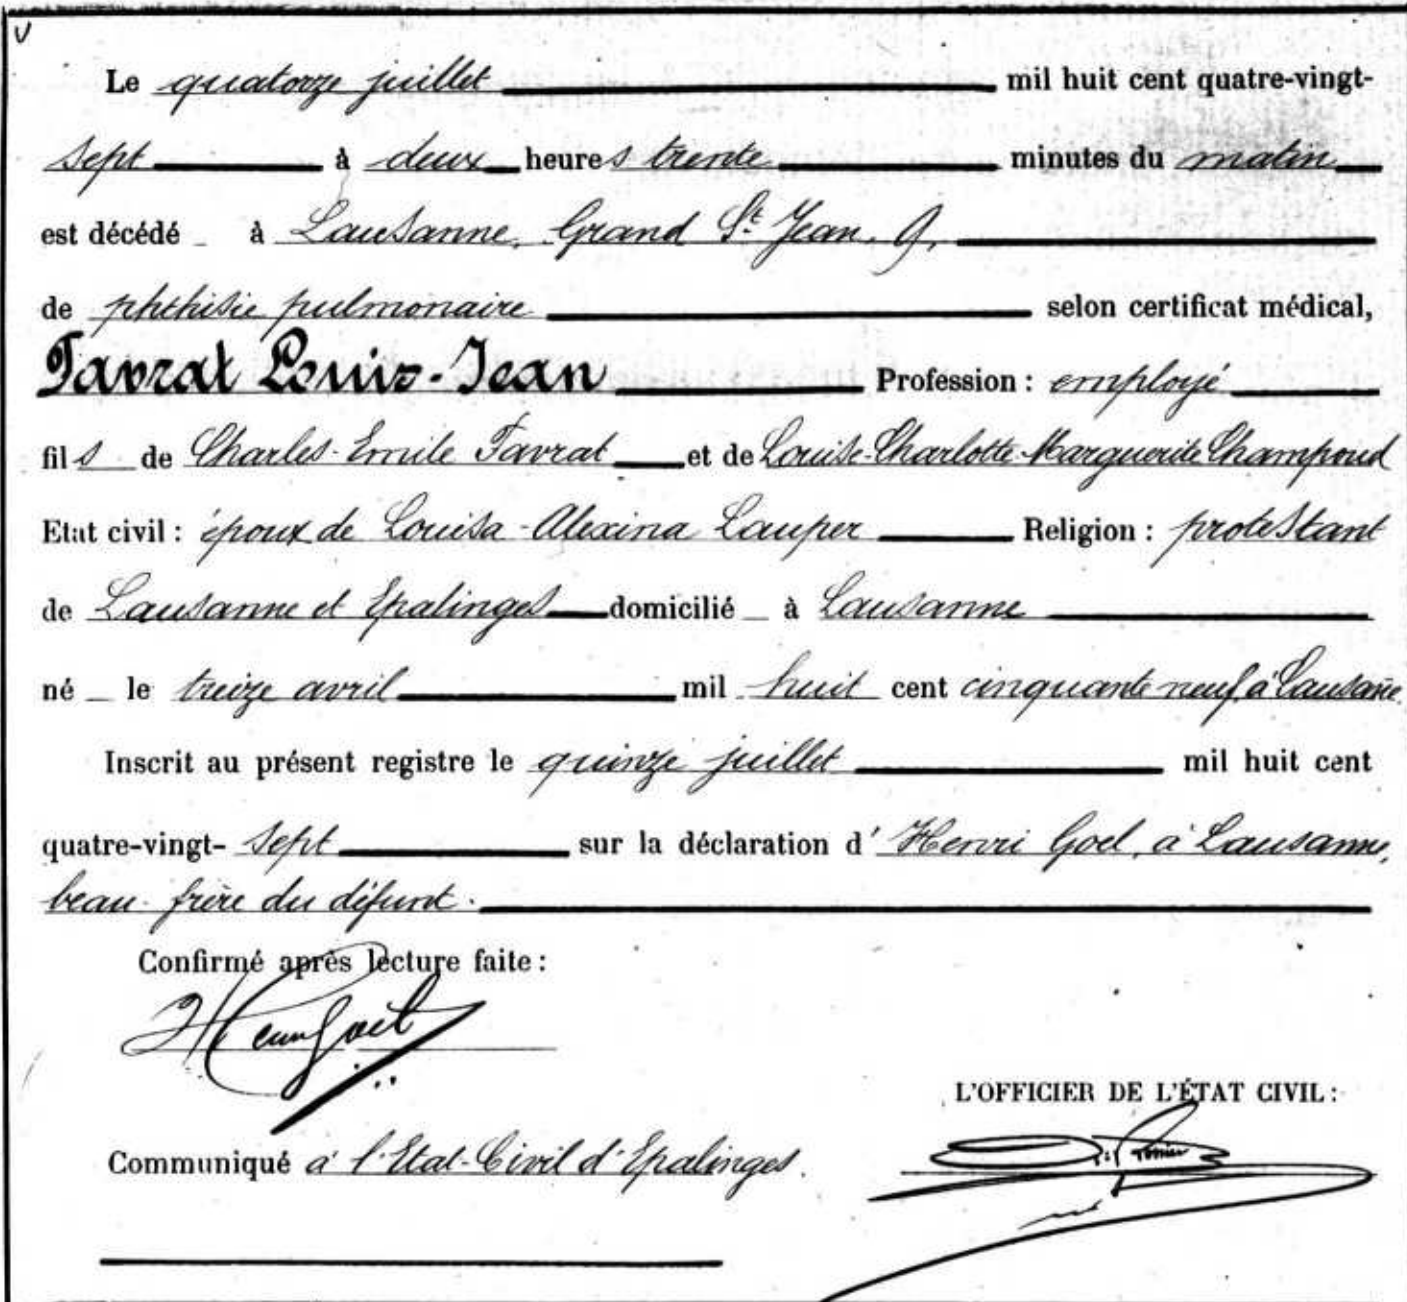 Le quatorze juillet mil huit cent quatre-vingt-
sept à deux heures trente minutes du matin
est décédé à Lausanne, Grand St Jean, 9,
de phthisie pulmonaire selon certificat médical,
Favrat Louis-Jean Profession : employé
fils de Charles-Emile Favrat et de Louise-Charlotte-Marguerite Champoud
Etat civil : époux de Louisa-Alexina Lauper Religion : protestant
de Lausanne et Epalinges domicilié à Lausanne
né le treize avril mil huit cent cinquante neuf, à Lausanne.
Inscrit au présent registre le quinze juillet mil huit cent
quatre-vingt- sept sur la déclaration d' Henri Goel, à Lausanne,
beau-frère du défunt.
Confirmé après lecture faite :
Henri Goel
L'OFFICIER DE L'ÉTAT CIVIL :
Communiqué à l'Etat-Civil d'Epalinges.